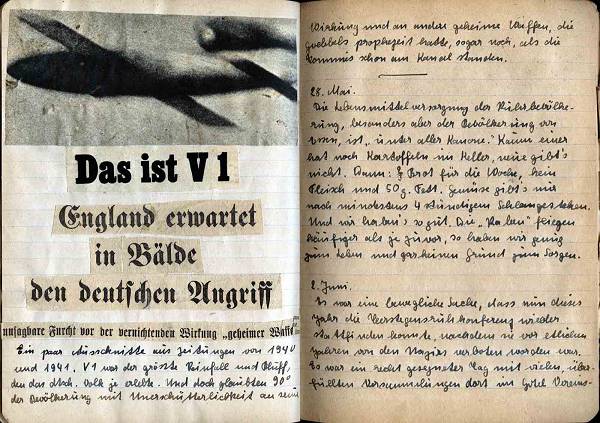 Das ist V 1
England erwartet
in Bälde
den deutschen Angriff
unsagbare Furcht vor der vernichtenden Wirkung „geheimer Waff
Ein paar Ausschnitte aus Zeitungen von 1940
und 1941. V1 war der grösste Reinfall und Bluff,
den das dtsch. Volk je erlebte. Und doch glaubten 90%
der Bevölkerung mit Unerschütterlichkeit an seine
Wirkung und an andere geheime Waffen, die
Goebbels prophezeit hatte, sogar noch, als die
Tommies schon am Kanal standen.
28. Mai.
Die Lebensmittelversorgung der Ruhrbevölke-
rung, besonders aber der Bevölkerung von
Essen, ist „unter aller Kanone." Kaum einer
hat noch Kartoffeln im Keller, neue gibt's
nicht. Dann: Brot für die Woche, kein
Fleisch und 50 g. Fett. Gemüse gibt's nur
nach mindestens 4 stündigem Schlangestehen.
Und wir haben's so gut. Die „Raben" fliegen
häufiger als je zuvor, so haben wir genug
zum Leben und gar keinen Grund zum Sorgen.
2. Juni.
Es war eine Sache, dass nun dieses
Jahr die wieder
stattfinden konnte, nachdem sie vor etlichen
Jahren von den Nazis verboten worden war.
Es war ein reich gesegneter Tag mit vielen, über-
füllten Versammlungen dort im Hotel Vereins-